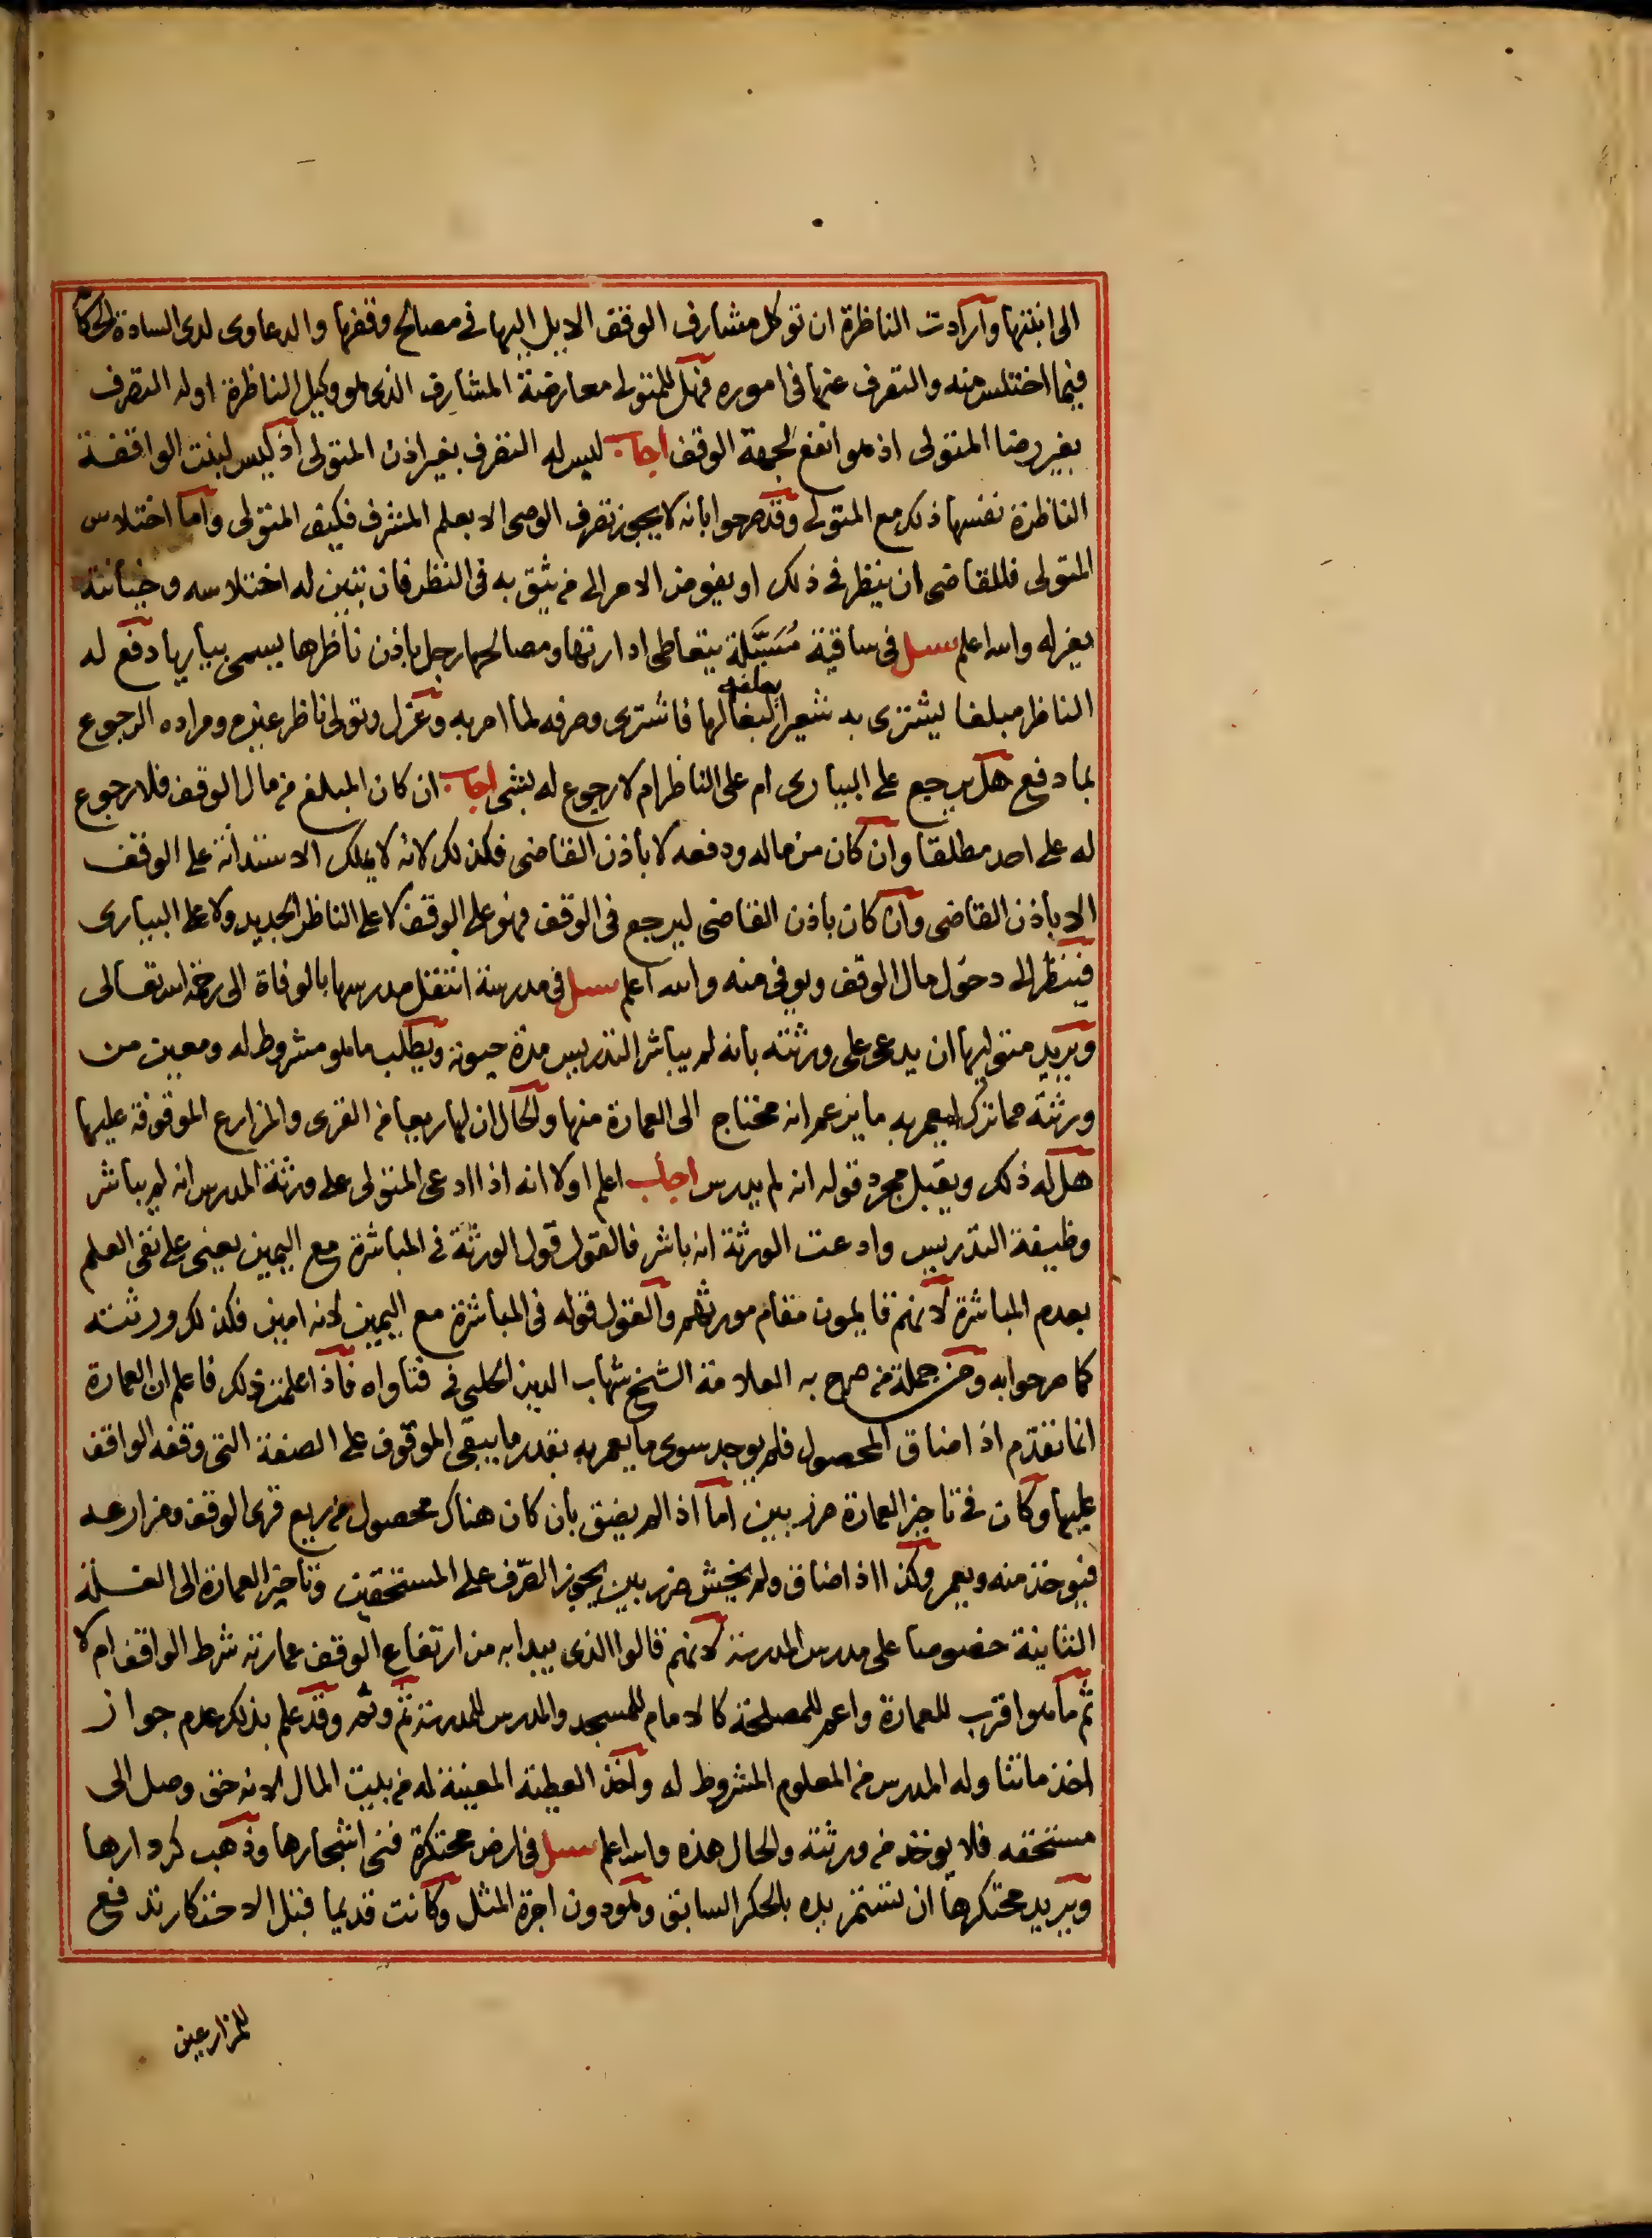 الى ابنتها وارادت الناظرة ان توكل مشارف الوقف الايل اليها في مصالح وقفها والدعاوى لدى السادة الحكا
فيما اختلس منه والتصرف عنها في اموره فهل للمتولى معارضة المشارف الذي هو وكيل الناظرة اوله التصرف
بغير رضا المتولى اذ هو انفع لجهة الوقف اجاب ليس له التصرف بغير اذن المتولى اذ ليس لبنت الواقفة
الناظرة نفسها ذلك مع المتولى وقد صرحوا بانه لا يجوز تصرف الوصى الا بعلم المشرف فكيف المتولى واما اختلاس
المتولى فللقاضى ان ينظر في ذلك او يفوض الامر الى من يثق به في النظر فان تبين له اختلاسه وخيانته
يعزله والله اعلم سيل في ساقية مُسَبَّلة يتعاطى ادارتها ومصالحها رجل باذن ناظرها يسمى بيارها دفع له
الناظر مبلغا ليشترى به شعيرا يعلفه لبغالها فاشترى وصرفه لما امر به وعزل وتولى ناظر غيره ومراده الرجوع
بما دفع هل يرجع على البيارى ام على الناظر ام لا رجوع له بشى اجاب ان كان المبلغ من مال الوقف فلا رجوع
له على احد مطلقا وان كان من ماله ودفعه لا باذن القاضى فكذلك لانه لا يملك الاستدانة على الوقف
الا باذن القاضى وان كان باذن القاضى ليرجع في الوقف فهو على الوقف لا على الناظر الجديد ولا على البيارى
فينظر الى دخول مال الوقف ويوفى منه والله اعلم سيل في مدرسة انتقل مدرسها بالوفاة الى رحمة الله تعالى
ويريد متوليها ان يدعى على ورثته بانه لم يباشر التدريس مدة حيوته ويطلب ما هو مشروط له ومعين من
ورثته مما ترك ليعمر به ما يزعم انه محتاج الى العمارة منها والحال ان لها ريعا من القرى والمزارع الموقوفة عليها
هل له ذلك ويقبل مجرد قوله انه لم يدرس اجاب اعلم اولا انه اذا ادعى المتولى على ورثة المدرس انه لم يباشر
وظيفة التدريس وادعت الورثة انه باشر فالقول قول الورثة في المباشرة مع اليمين يعنى على نفى العلم
بعدم المباشرة لانهم قايمون مقام مورثهم والقول قوله في المباشرة مع اليمين لانه امين فكذلك ورثته
كما صرحوا به ومن جملة من صرح به العلامة الشيخ شهاب الدين الحلبى في فتاواه فاذا علمت ذلك فاعلم ان العمارة
انما تقدم اذا ضاق المحصول فلم يوجد سوى ما يعمر به بقدر ما يبقى الموقوف على الصفة التى وقفه الواقف
عليها وكان في تاخير العمارة ضرر بين اما اذا لم يضق بان كان هناك محصول من ريع قرى الوقف ومزارعه
فيوخذ منه ويعمر وكذا اذا ضاق ولم يخش ضرر بين يجوز الصرف على المستحقين وتاخير العمارة الى الغلة
الثانية خصوصا على مدرس المدرسة لانهم قالوا الذى يبدا به من ارتفاع الوقف عمارته شرط الواقف ام لا
ثم ما هو اقرب للعمارة واعم للمصلحة كالامام للمسجد والمدرس للمدرسة ثم وثم وقد علم بذلك عدم جواز
اخذ ما تناوله المدرس من المعلوم المشروط له واخذ العطية المعينة له من بيت المال لانه حق وصل الى
مستحقه فلا يوخذ من ورثته والحال هذه والله اعلم سيل في ارض محتكرة فنى اشجارها وذهب كردارها
ويريد محتكرها ان تستمر بيده بالحكر السابق وهو دون اجرة المثل وكانت قديما قبل الاحتكار تدفع
للمزارعين